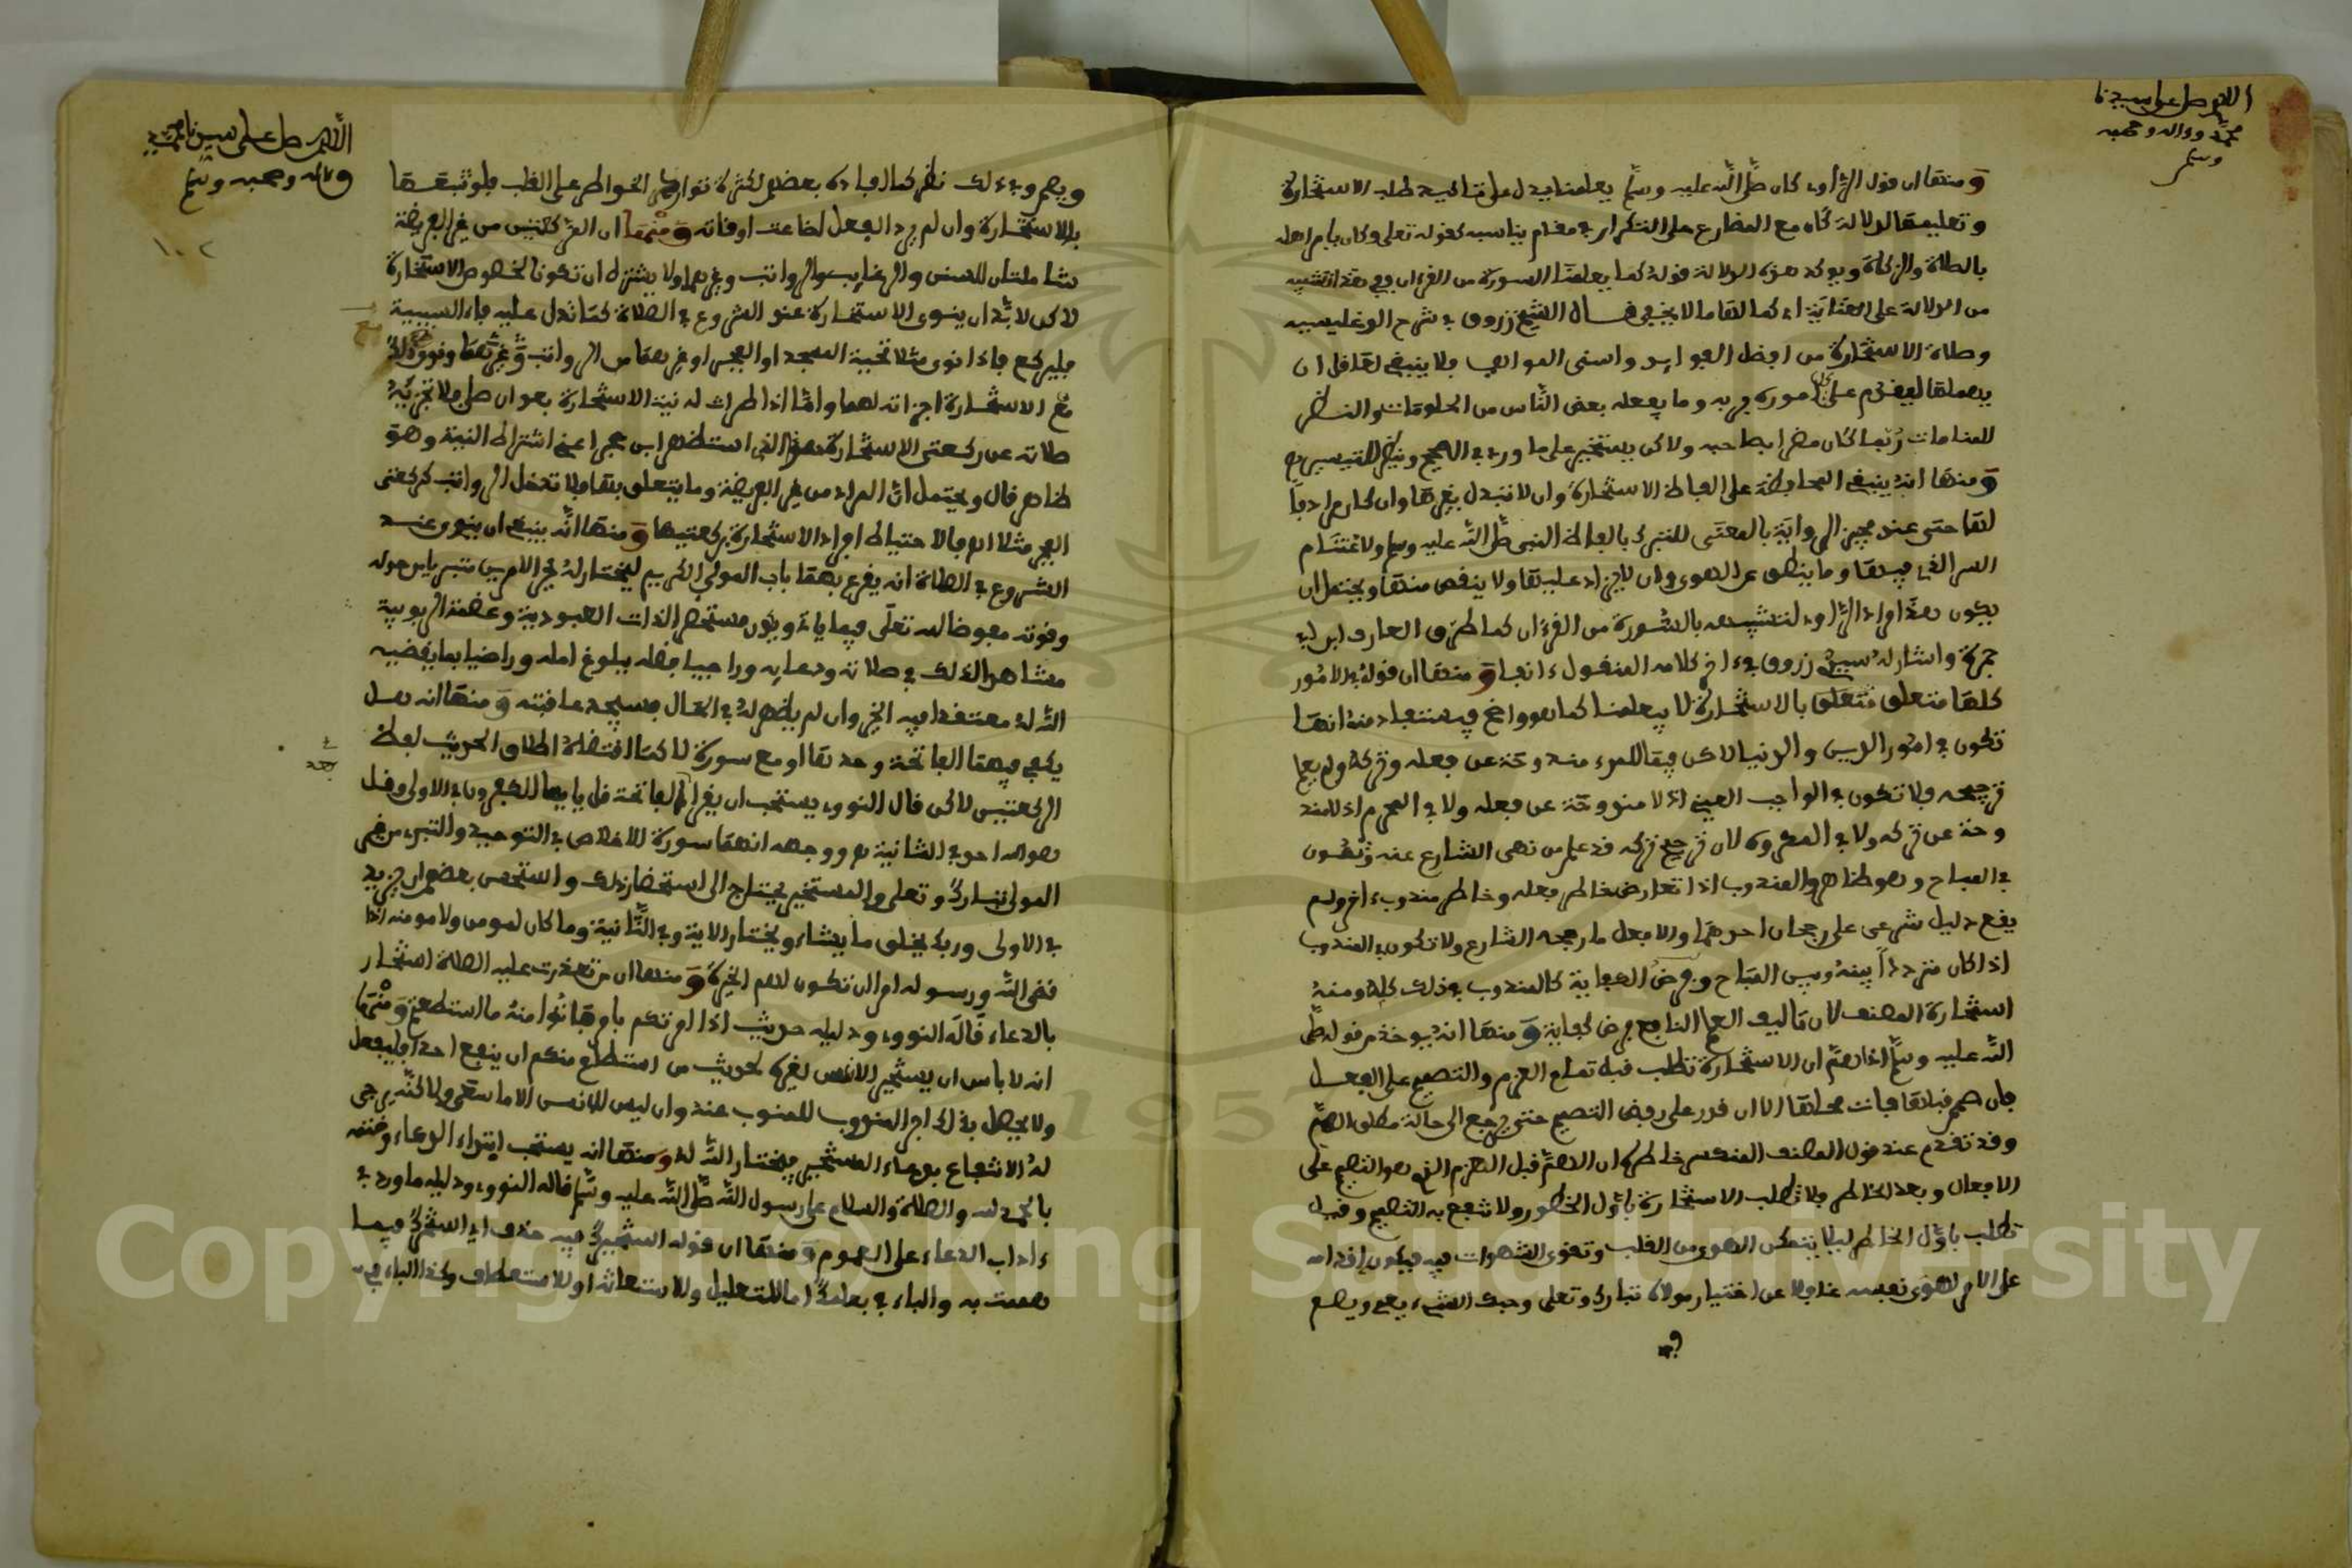 اللهم صل على سيدنا
محمد وءاله وصحبه
وسلم
ومنها ان قول الراوي كان صلى الله عليه وسلم يعلمنا يدل على تاكيد طلب الاستخارة
وتعليمها لدلالة كان مع المضارع على التكرار في مقام يناسبه كقوله تعلى وكان يامر اهله
بالصلاة والزكاة ويوكد هذه الدلالة قوله كما يعلمنا السورة من القرءان ففي هذا التشبيه
من الدلالة على الاعتناء كما لها ما لا يخفى قال الشيخ زروق في شرح الوغليسية
وصلاة الاستخارة من افضل الفوايد واسنى المواهب فلا ينبغي لعاقل ان
يهملها ليقدم على امور ربه وما يفعله بعض الناس من الخلوات والنظر
للمنامات ربما كان مضرا بصاحبه ولاكن يستخير على ما ورد في الصحيح وينظر التيسير
ومنها انه ينبغي المحافظة على الفاظ الاستخارة وان لا تبدل بغيرها وان كان مرادفا
لها حتى عند مجيز الرواية بالمعنى للتبرك بالفاظ النبي صلى الله عليه وسلم ولاغتنام
السر الذي فيها وما ينطق عن الهوى وان لا يزاد عليها ولا ينقص منها ويحتمل ان
يكون هذا مراد الراوي لتشبيهه بالسورة من القرءان كما طرق العارف ابن ابي
جمرة واشار له سيدي زروق في ءاخر كلامه المنقول ءانفا ومنها ان قوله في الامور
كلها متعلق بالاستخارة لا يعلمنا كما هو واضح فيستفاد منه انها
تكون في امور الدين والدنيا لاكن فيما للمرء مندوحة عن فعله وتركه ولم يعلم
ترجيحه فلا تكون في الواجب العيني اذ لا مندوحة عن فعله ولا في المحرم اذ لا مند
وحة عن تركه ولا في المكروه لان ترجيح تركه قد علم من نهي الشارع عنه وتكون
في المباح وهو ظاهر والمندوب اذا تعارض خاطر فعله وخاطر مندوب ءاخر ولم
يقع دليل شرعي على رجحان احدهما والا فعل ما رجحه الشارع ولا تكون في المندوب
اذا كان مترددا بينه وبين المباح وفرض الكفاية كالمندوب في ذلك كله ومنه
استخارة المصنف لان تاليف العلم النافع فرض كفاية ومنها انه يوخذ من قوله صلى
الله عليه وسلم اذا هم ان الاستخارة تطلب قبل تمام العزم والتصميم على الفعل
فان صمم قبلها فات محلها الا ان قدر على رفض التصميم حتى يرجع الى حالة مطلق الهم
وقد تقدم عند قول المصنف المنكسر خاطره ان الهم قبل العزم الذي هو التصميم على
الافعال وبعد الخاطر فلا تطلب الاستخارة باول الخطور ولا تنفع به التصميم وقيل
تطلب باول الخاطر ليلا يتمكن الهوى من القلب وتقوى الشهوات فيه فيكون اقدامه
على الامر لهوى نفسه غافلا عن اختيار مولاه تبارك وتعلى وحبك الشيء يعمي ويصم
اللهم صل على سيدنا محمد
وءاله وصحبه وسلم
١٠٢
ويصم وفي ذلك نظر كما افاده بعضهم لكثرة توارد الخواطر على القلب فلو تتبعها
بالاستخارة وان لم يرد الفعل لضاعت اوقاته ومنها ان الركعتين من غير الفريضة
شاملتان للسنن والرغايب والرواتب وغيرها ولا يشترط ان تكونا لخصوص الاستخارة
لاكن لا بد ان ينوي الاستخارة عند الشروع في الصلاة كما تدل عليه فاء السببية
فليركع فاذا نوى مثلا تحية المسجد او الفجر او غيرهما من الرواتب وغيرها ونوى ذلك
مع الاستخارة اجزاته لهما واما اذا طرات له نية الاستخارة بعد ان صلى فلا تجزيه
صلاته عن ركعتي الاستخارة وهو الذي استظهر ابن حجر اعني اشتراط النية وهو
ظاهر قال ويحتمل ان المراد من غير الفريضة وما يتعلق بها فلا تدخل الرواتب كركعتي
الفجر مثلا اه فالاحتياط افراد الاستخارة بركعتيها ومنها انه ينبغي ان ينوي عند
الشروع في الصلاة انه يقرع بهما باب المولى الكريم ليختار له خير الامرين متبريا من حوله
وقوته مفوضا لله تعلى فيما ياتي ويكون مستحضرا لذات العبودية وعظمة الربوبية
مشاهدا لذلك في صلاته ودعايه وراجيا فضله ببلوغ امله وراضيا بما يقضيه
الله له معتقدا فيه الخير وان لم يظهر له في الحال فسيجد عاقبته ومنها انه هل
يكفي فيهما الفاتحة وحدها او مع سورة لا كما اقتضاه اطلاق الحديث لفظ
الركعتين لاكن قال النووي يستحب ان يقرا بالفاتحة قل يا ايها الكافرون في الاولى وقل
هو الله احد في الثانية اه ووجهه انهما سورة للاخلاص في التوحيد والتبرء من غير
المولى تبارك وتعلى والمستخير يحتاج الى استحضار ذلك واستحسن بعضهم ان يزيد
في الاولى وربك يخلق ما يشاء ويختار الاية وفي الثانية وما كان لمومن ولا مومنة اذا
قضى الله ورسوله امرا ان تكون لهم الخيرة ومنها ان من تعذرت عليه الصلاة استخار
بالدعاء قاله النووي ودليله حديث اذا امرتكم بامر فاتوا منه ما استطعتم ومنها
انه لا باس ان يستخير الانس لغيره لحديث من استطاع منكم ان ينفع اخاه فليفعل
ولا يحصل بذلك اجر المندوب للمنوب عنه وان ليس للانسن الا ما سعى ولاكنه يرجى
له الانتفاع بدعاء المستخير فيختار الله له ومنها انه يستحب ابتداء الدعاء وختمه
بالحمد لله والصلاة والسلام على رسول الله صلى الله عليه وسلم قاله النووي ودليله ما ورد في
ءاداب الدعاء على العموم ومنها ان قوله استخيرك فيه حذف اي استخيرك فيما
هممت به والباء في بعلمك اما للتعليل وللاستعانة او للاستعطاف وكذا الباء في
Copyright © King Saud University
1957